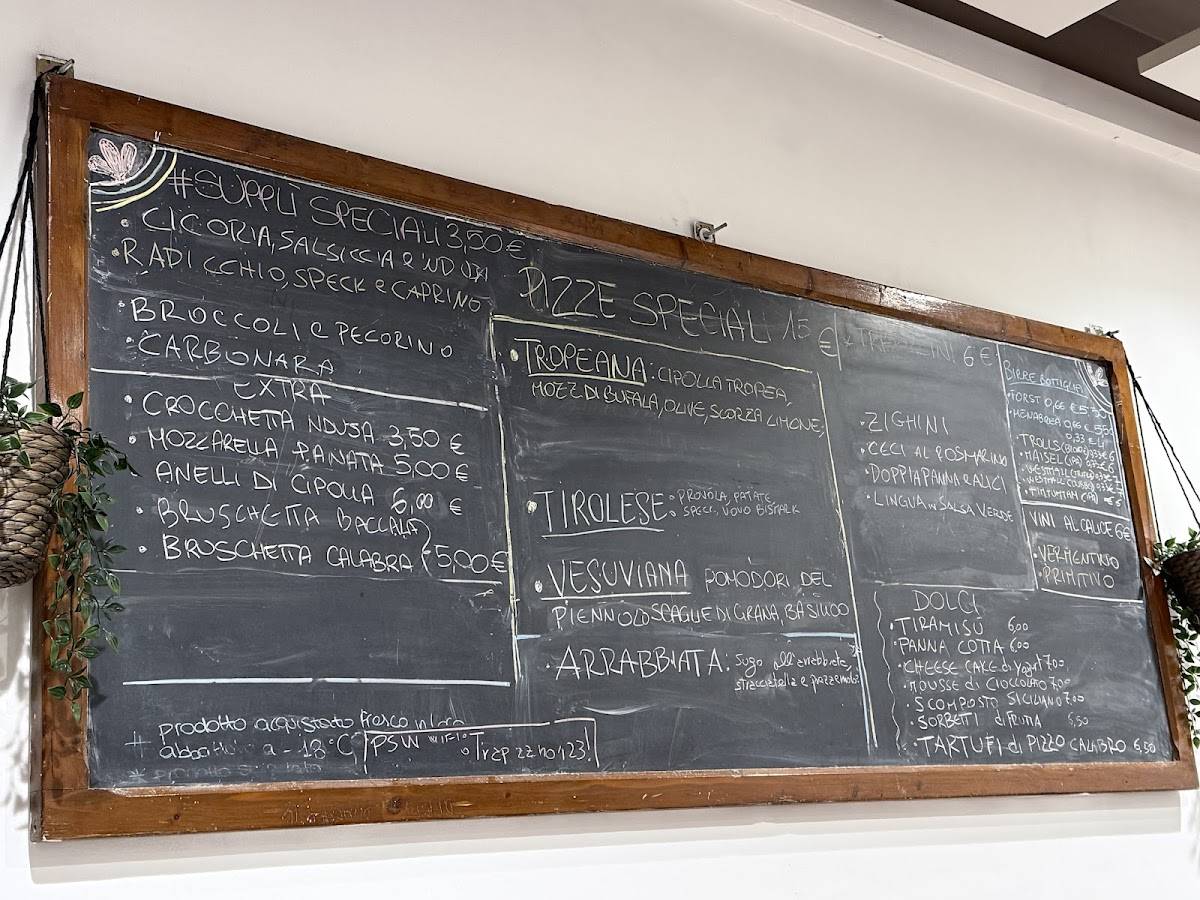 #SUPPLÌ SPECIALI 3,50 €
• CICORIA, SALSICCIA e 'NDUJA
• RADICCHIO, SPECK e CAPRINO
• BROCCOLI e PECORINO
• CARBONARA
EXTRA
• CROCCHETTA NDUJA 3,50 €
• MOZZARELLA PANATA 5,00 €
ANELLI DI CIPOLLA 6,00 €
• BRUSCHETTA BACCALÀ
• BRUSCHETTA CALABRA } 5,00 €
+ prodotto acquistato fresco
abbattuto a -18°C
PSW WIFI: Trapizzino123!
PIZZE SPECIALI 15 €
• TROPEANA: CIPOLLA TROPEA,
MOZZ DI BUFALA, OLIVE, SCORZA LIMONE,
• TIROLESE: PROVOLA, PATATE,
SPECK, UOVO
• VESUVIANA POMODORI DEL
PIENNOLO SCAGLIE DI GRANA, BASILICO
• ARRABBIATA: Sugo all'arrabbiata,
stracciatella e
6 €
• ZIGHINI
• CECI AL ROSMARINO
• DOPPIA PANNA e ALICI
• LINGUA in SALSA VERDE
BIRRE BOTTIGLIA
• FORST 0,66 € 5,50
• MENABREA 0,66 €
0,33 € 4
VINI AL CALICE 6€
• VERMENTINO
• PRIMITIVO
DOLCI
• TIRAMISÙ 6,00
PANNA COTTA 6,00
• CHEESE CAKE di yogurt 7,00
• MOUSSE di CIOCCOLATO 7,00
• SCOMPOSTO SICILIANO 7,00
• SORBETTI di FRUTTA 6,50
• TARTUFI di PIZZO CALABRO 6,50